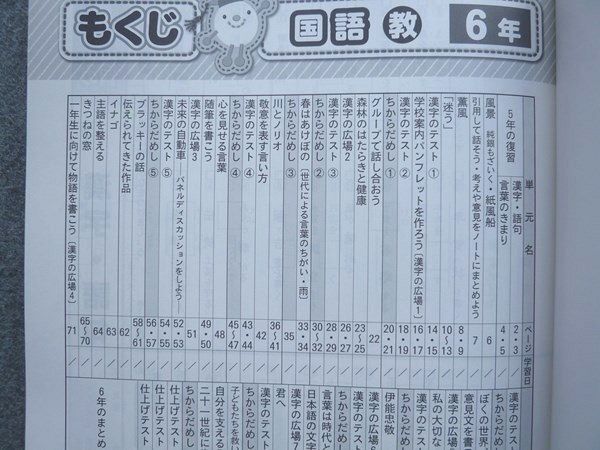 もくじ
国語 教 6年
単元名 ページ 学習日
5年の復習 漢字・語句 2・3
言葉のきまり 4・5
風景 純銀もざいく・紙風船 6
引用して話そう・考えや意見をノートにまとめよう 7
薫風 8・9
「迷う」 10〜13
漢字のテスト① 14・15
学校案内パンフレットを作ろう〔漢字の広場1〕 16・17
漢字のテスト② 18・19
ちからだめし① 20・21
グループで話し合おう 22
森林のはたらきと健康 23〜25
漢字の広場2 26・27
漢字のテスト③ 28・29
ちからだめし② 30〜32
春はあけぼの〔世代による言葉のちがい・雨〕 33・34
ちからだめし③ 35
川とノリオ 36〜41
敬意を表す言い方 42
漢字のテスト④ 43・44
ちからだめし④ 45〜47
心を見せる言葉 48
随筆を書こう 49・50
漢字の広場3 51
未来の自動車 ―パネルディスカッションをしよう― 52・53
漢字のテスト⑤ 54・55
ちからだめし⑤ 56・57
ブラッキーの話 58〜61
伝えられてきた作品 62
イナゴ 63
主語を整える 64
きつねの窓 65〜70
一年生に向けて物語を書こう〔漢字の広場4〕 71
漢字のテス
ちからだめ
ぼくの世界、
意見文を書
私の大切な
漢字のテス
ちからだめし
伊能忠敬
漢字の広場6
漢字のテスト
ちからだめし
言葉は時代と
日本語の文字
漢字の広場7
君へ
漢字のテスト
ちからだめし
子どもたちを救い
自分を支える
二十一世紀に
ちからだめし
仕上げテスト
仕上げテスト
仕上げテスト
6年のまとめ